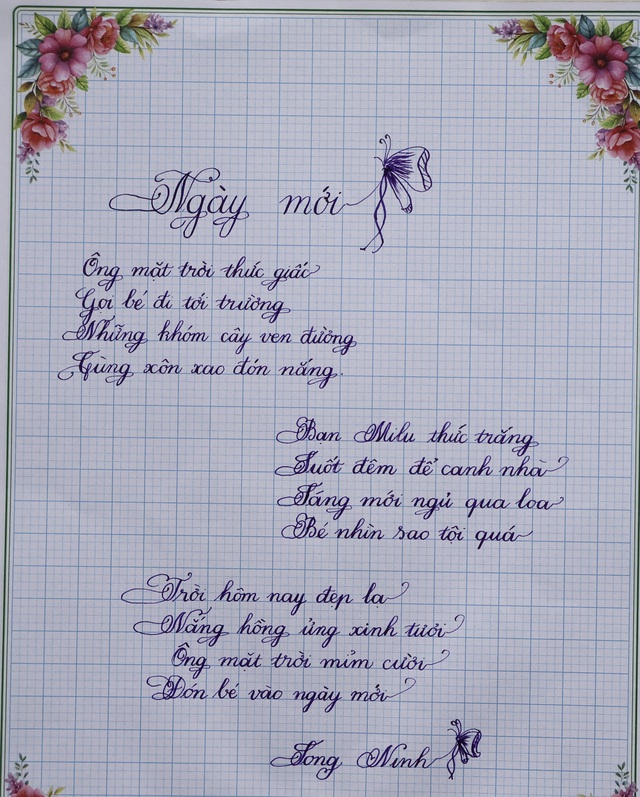 Ngày mới
Ông mặt trời thức giấc
Gọi bé đi tới trường
Những khóm cây ven đường
Cùng xôn xao đón nắng.
Bạn Milu thức trắng
Suốt đêm để canh nhà
Sáng mới ngủ qua loa
Bé nhìn sao tội quá
Trời hôm nay đẹp lạ
Nắng hồng ửng xinh tươi
Ông mặt trời mỉm cười
Đón bé vào ngày mới
Song Ninh